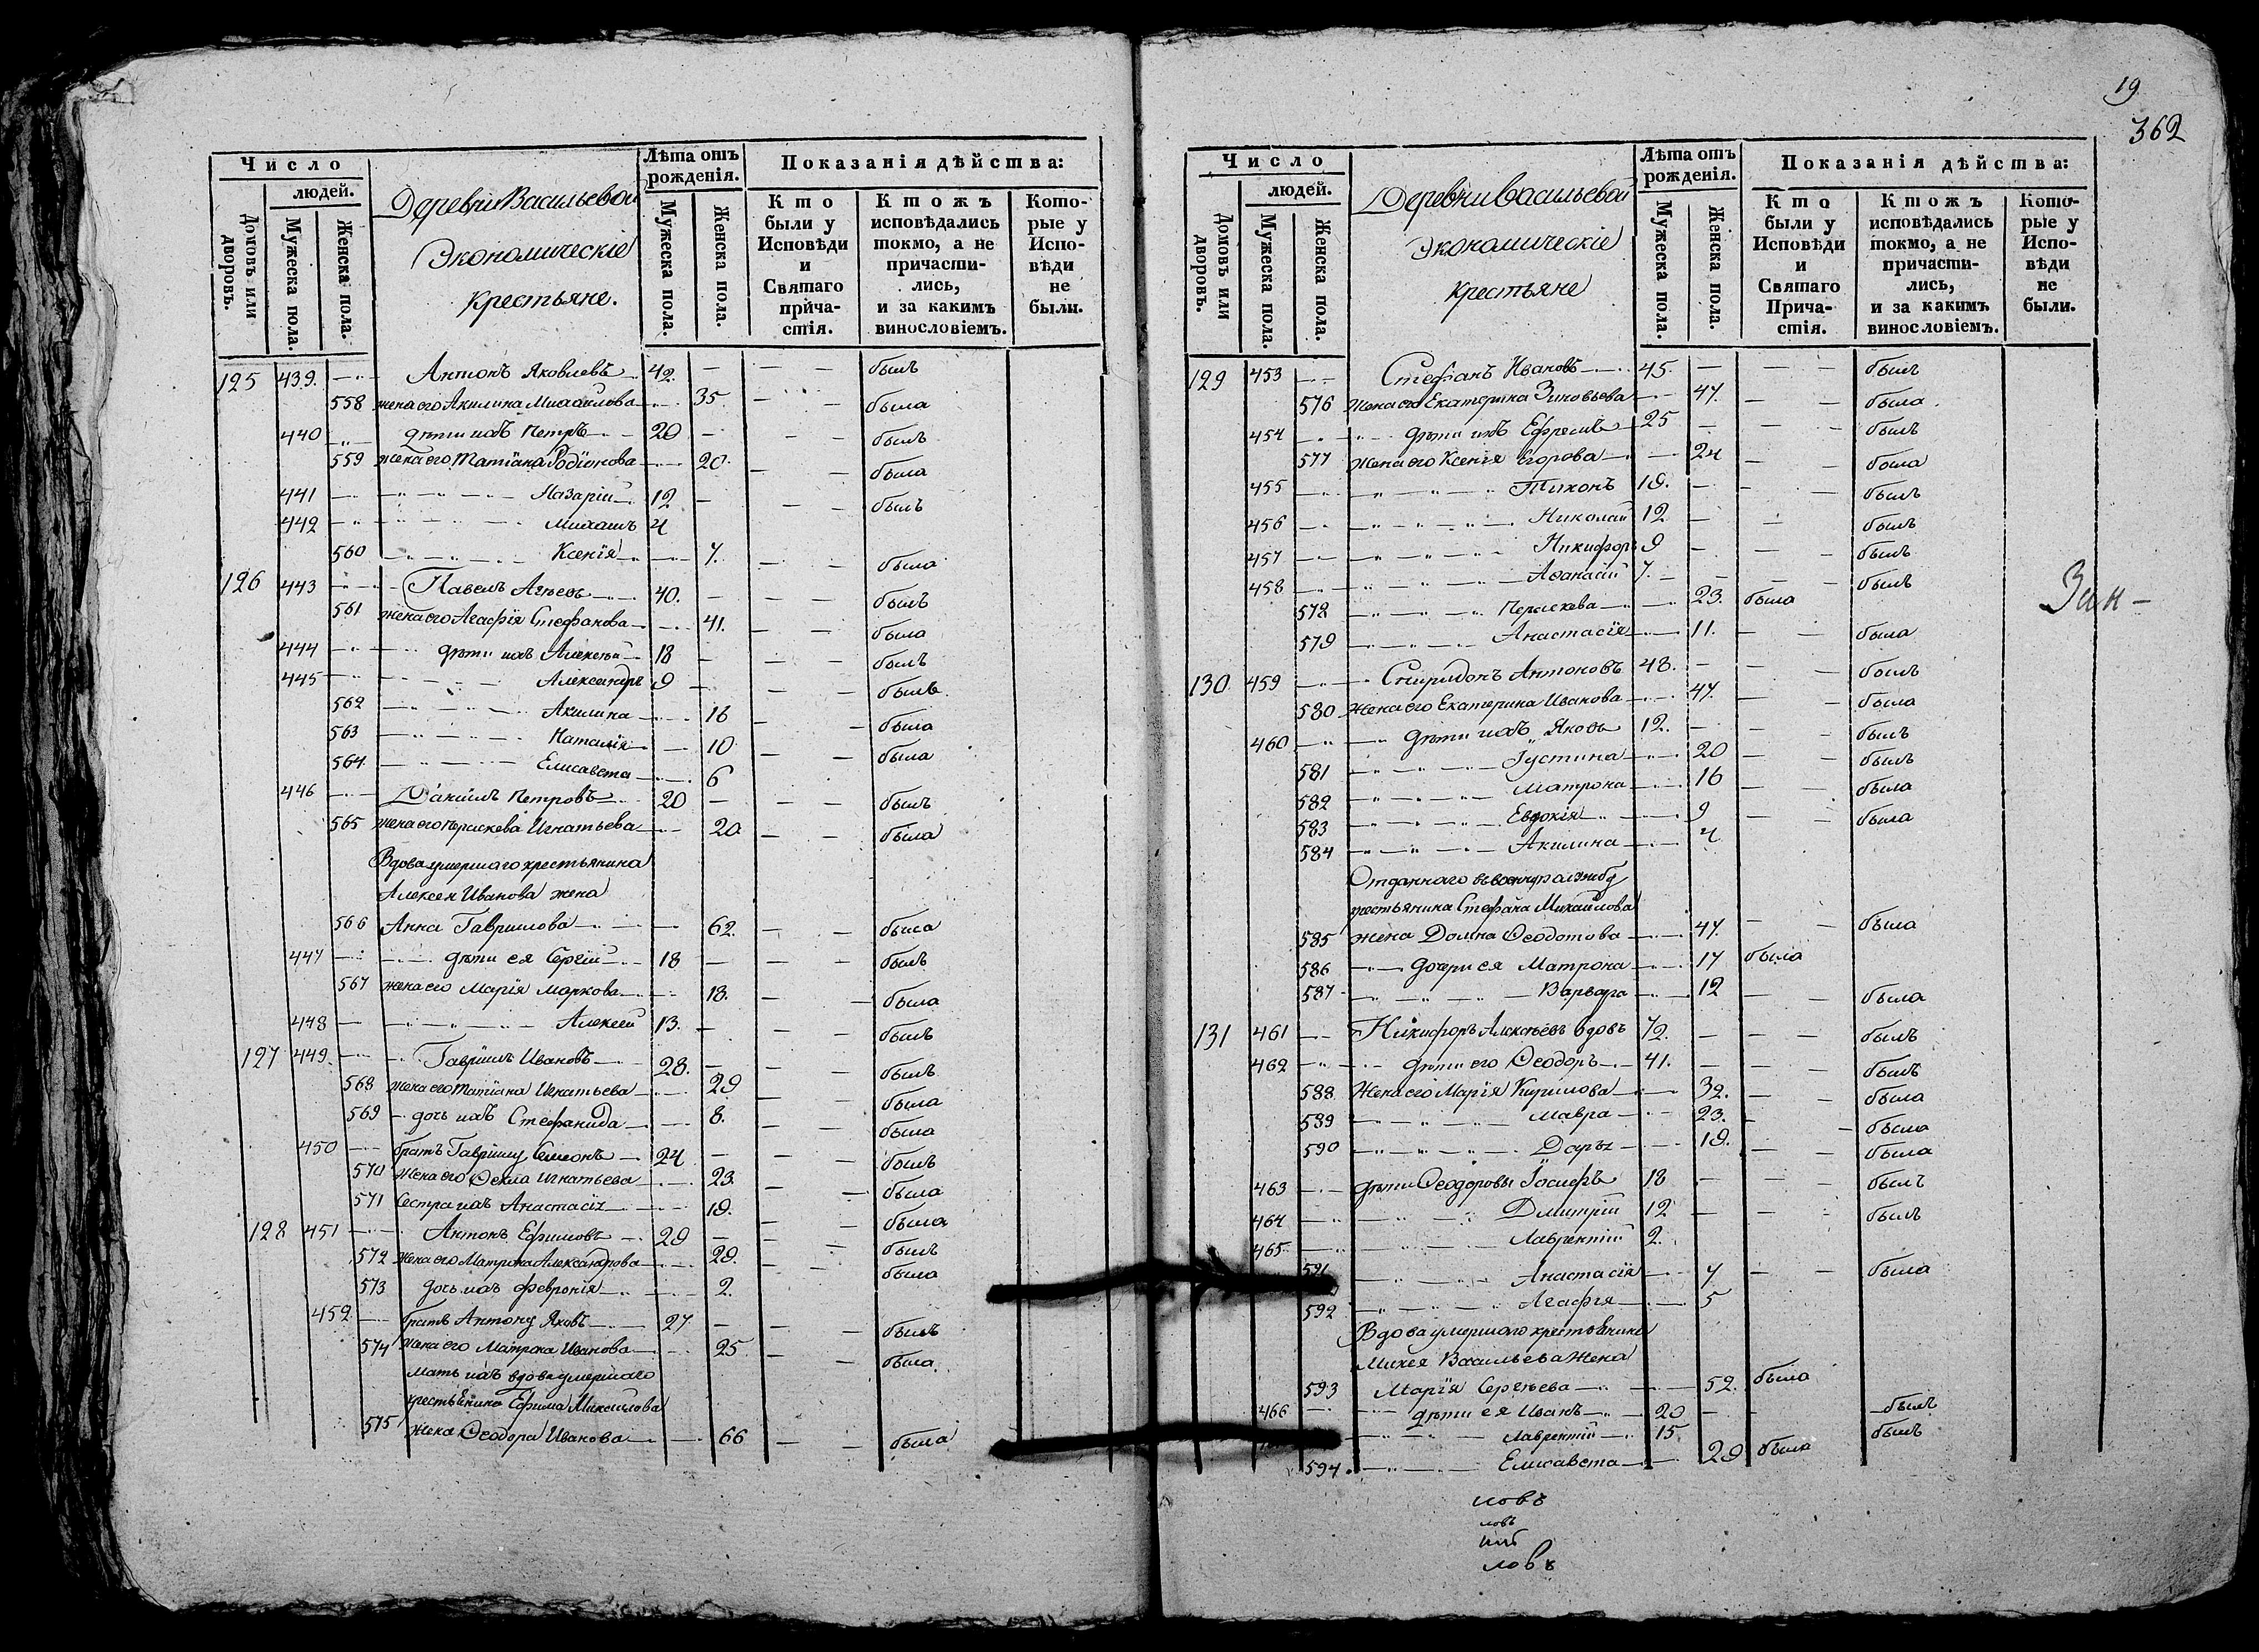 Число
людей.
Домовъ или дворовъ.
Мужеска пола.
Женска пола.
Деревни Васильевой
Экономическіе
крестьяне.
Лѣта отъ рожденія.
Мужеска пола.
Женска пола.
Показанія дѣйства:
Кто были у Исповѣди и Святаго прича-стія.
Ктожъ исповѣдались токмо, а не причасти-лись, и за какимъ винословіемъ.
Кото-рые у Испо-вѣди не были.
125 439. Антонъ Яковлевъ 42. былъ
558 жена его Акилина Михайлова 35 была
440 дѣти ихъ Петръ 20 былъ
559 жена его Татіана Родіонова 20. была
441 Назарій 12 былъ
442 Михаилъ 4
560 Ксенія 7. была
126 443 Павелъ Агѣевъ 40. былъ
561 жена его Агафія Стефанова 41. была
444 дѣти ихъ Алексѣй 18 былъ
445 Александръ 9 былъ
562 Акилина 16 была
563 Наталія 10 была
564 Елисавета 6
446 Даніилъ Петровъ 20 былъ
565 жена его Параскева Игнатьева 20 была
Вдова умершаго крестьянина
Алексея Иванова жена
566 Анна Гаврилова 62. была
447 дѣти ея Сергій 18 былъ
567 жена его Марія Маркова 18. была
448 Алексей 13. былъ
127 449. Гавріилъ Ивановъ 28. былъ
568 жена его Татіана Игнатьева 29 была
569 дочь ихъ Стефанида 8. была
450 братъ Гавріилу Семіонъ 24 былъ
570 Жена его Фекла Игнатьева 23 была
571 Сестра ихъ Анастасія 19. была
128 451 Антонъ Ефимовъ 29 былъ
572 Жена его Матрона Александрова 29. была
573 дочь ихъ Февронія 2.
452 братъ Антону Яковъ 27 былъ
574 Жена его Матрона Иванова 25 была
Мать ихъ вдова умершаго
крестьянина Ефима Михайлова
575 жена Феодора Иванова 66 была
19
362
Число
людей.
Домовъ или дворовъ.
Мужеска пола.
Женска пола.
Деревни Васильевой
Экономическіе
крестьяне
Лѣта отъ рожденія.
Мужеска пола.
Женска пола.
Показанія дѣйства:
Кто были у Исповѣди и Святаго Прича-стія.
Ктожъ исповѣдались токмо, а не причасти-лись, и за какимъ винословіемъ.
Кото-рые у Испо-вѣди не были.
129 453 Стефанъ Ивановъ 45. былъ
576 Жена его Екатерина Зиновьева 47. была
454 дѣти ихъ Ефремъ 25 былъ
577 Жена его Ксенія Егорова 24 была
455 Тихонъ 19. былъ
456 Николай 12 былъ
457 Никифоръ 9 былъ
458 Афанасій 7. былъ
572 Параскева 23. была
579 Анастасія 11. была
130 459 Спиридонъ Антоновъ 48. былъ
580 Жена его Екатерина Иванова 47. была
460 дѣти ихъ Яковъ 12. былъ
581 Іустина 20 былъ
582 Матрона 16 была
583 Евдокія 9 была
584 Акилина 4
Отданнаго въ военную службу
крестьянина Стефана Михайлова
585 жена Домна Феодотова 47. была
586 дочери ея Матрона 17 была
587 Варвара 12 была
131 461 Никифоръ Алексѣевъ вдовъ 72. былъ
462 дѣти его Феодоръ 41. былъ
588 Жена его Марія Кирилова 32. была
589 Мавра 23. была
590 Дарья 19. была
463 дѣти Феодоровы Іосифъ 18 былъ
464 Димитрій 12 былъ
465 Лаврентій 2.
591 Анастасія 7 была
592 Агафія 5
Вдова умершаго крестьянина
Михея Васильева жена
593 Марія Сергѣева 52. была
466 дѣти ея Иванъ 20 былъ
Лаврентій 15 былъ
594 Елисавета 29 была
ловъ
ловъ
ловъ